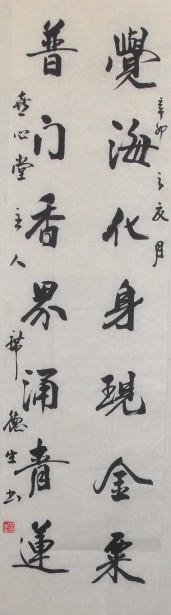 覺海化身現金粟
辛卯之夏月
普门香界涌青蓮
壺心堂主人
德生书